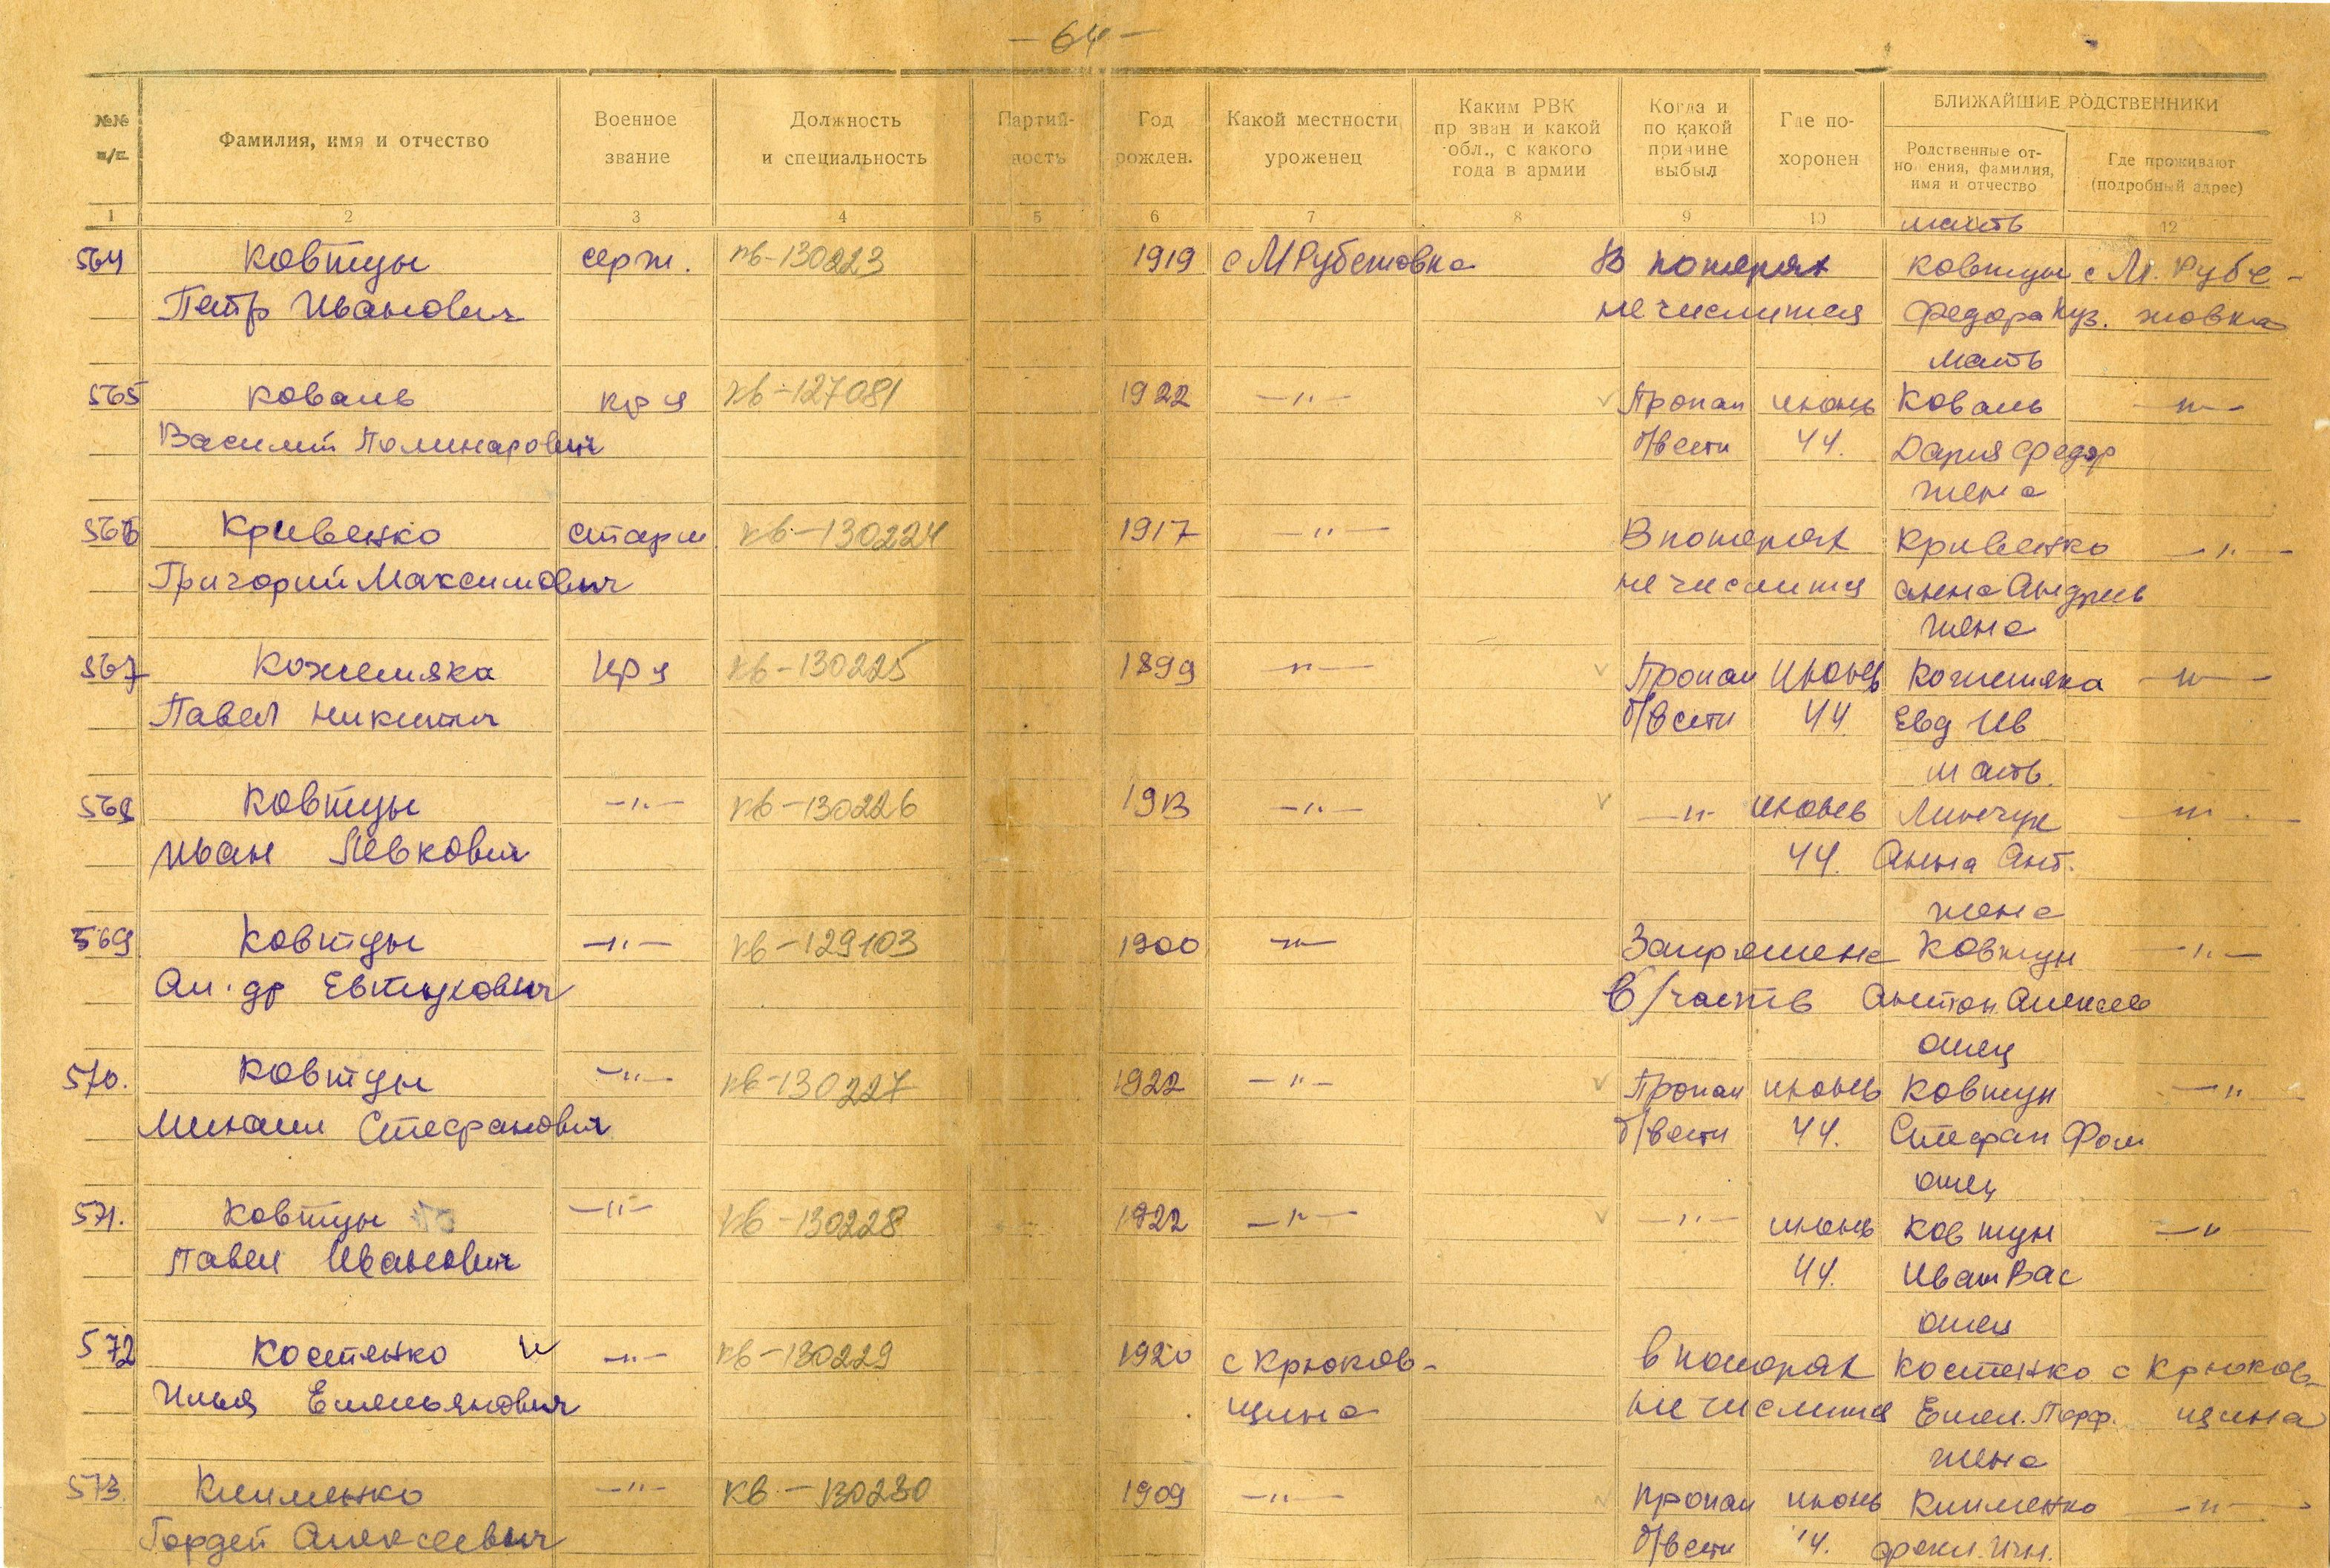 — 64 —
№№ п/п.
Фамилия, имя и отчество
Военное звание
Должность и специальность
Партий- ность
Год рожден.
Какой местности уроженец
Каким РВК пр зван и какой обл., с какого года в армии
Когда и по какой причине выбыл
Где по- хоронен
БЛИЖАЙШИЕ РОДСТВЕННИКИ
Родственные от- но ения, фамилия, имя и отчество
Где проживают (подробный адрес)
1 2 3 4 5 6 7 8 9 10 12
мать
564 Ковтун серж. кв-130223 1919 с М Рубежовка В потерях Ковтун с М. Рубе-
Петр Иванович не числится Федора Куз. жовка
мать
565 Коваль кр-ц кв-127081 1922 —"— Пропал июнь Коваль —"—
Василий Полинарович б/вести 44. Дария Федор
жена
566 Кривенко старш кв-130224 1917 —"— В потерях Кривенко —"—
Григорий Максимович не числится Анна Андреев
жена
567 Кожемяка кр-ц кв-130225 1899 —"— Пропал июнь Кожемяка —"—
Павел Никитич б/вести 44 Евд Ив
мать.
568 Ковтун —"— кв-130226 1913 —"— —"— июнь —"—
Иван Левкович 44. Анна Ант.
жена
569 Ковтун —"— кв-129103 1900 —"— Ковтун —"—
Ал-др Евтухович в/часть Антон Алексеев
отец
570. Ковтун —"— кв-130227 1922 —"— Пропал июнь Ковтун —"
Михаил Стефанович б/вести 44. Стефан Фом
отец
571. Ковтун —"— кв-130228 1922 —"— —"— июнь Ковтун —"
Павел Иванович 44. Иван Вас
отец
572 Костенко —"— кв-130229 1920 с Крюков- в потерях Костенко с Крюков-
Илья Емельянович щина не числится Емел. Порф. щина
жена
573. Клименко —"— кв-130230 1909 —"— пропал июнь Клименко —"—
Гордей Алексеевич б/вести 44.